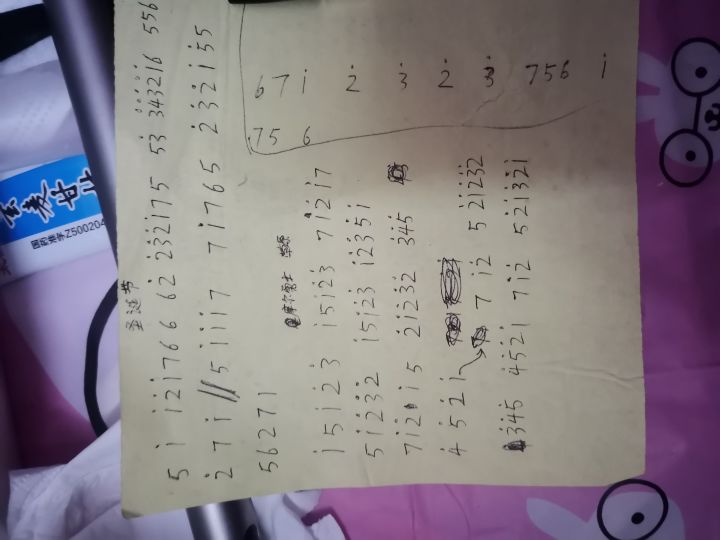 圣诞节
5 1 121766 62 232175 53 343216 556
2 7 1 // 5 1 1 1 7 7 1 7 6 5 2 3 2 1 5 5
5 6 2 7 1
摩尔勇士
1 5 1 2 3 1 5 1 2 3 7 1 2 1 7
5 1 2 3 2 1 5 1 2 3 1 2 3 5 1
7 1 2 1 5 2 1 2 3 2 3 4 5
4 5 2 1 7 1 2 5 2 1 2 3 2
3 4 5 4 5 2 1 7 1 2 5 2 1 3 2 1
6 7 1 2 3 2 3 756 1
75 6
国药准字Z500204